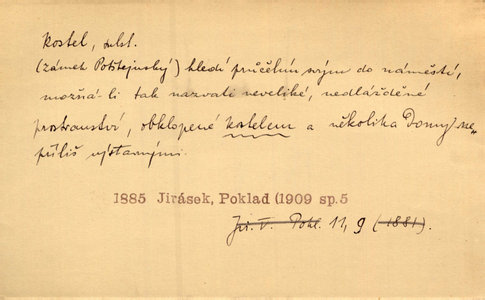 kostel, subst.
(zámek Potštejnský) hledí průčelím svým do náměstí,
možná-li tak nazvati neveliké, nedlážděné
prostranství, obklopené kostelem a několika domy ne
příliš výstavnými.
1885 Jirásek, Poklad (1909 sp. 5
Jir. V. Pokl. 11, 9 (1881).